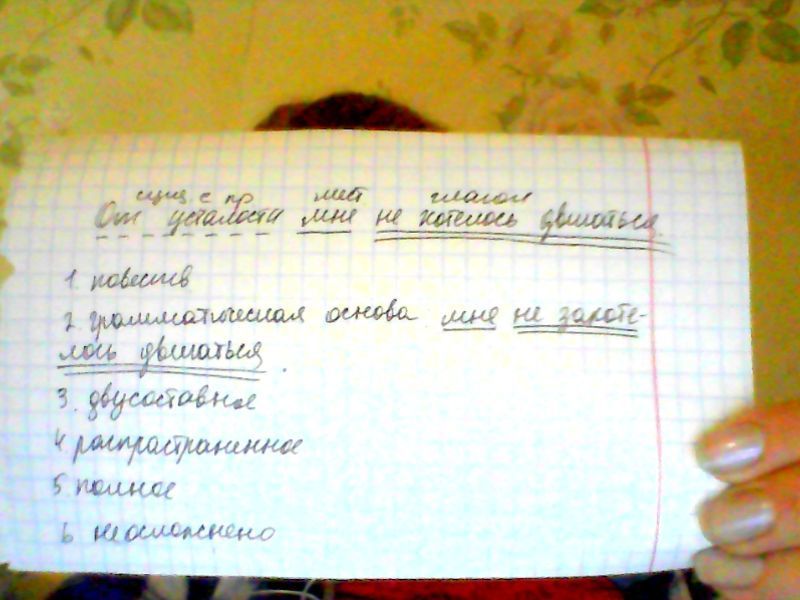 сущ. с пр мест глагол
От усталости мне не хотелось двигаться.
1. повеств
2. грамматическая основа мне не захоте-
лось двигаться.
3. двусоставное
4. распространенное
5. полное
6 неосложнено